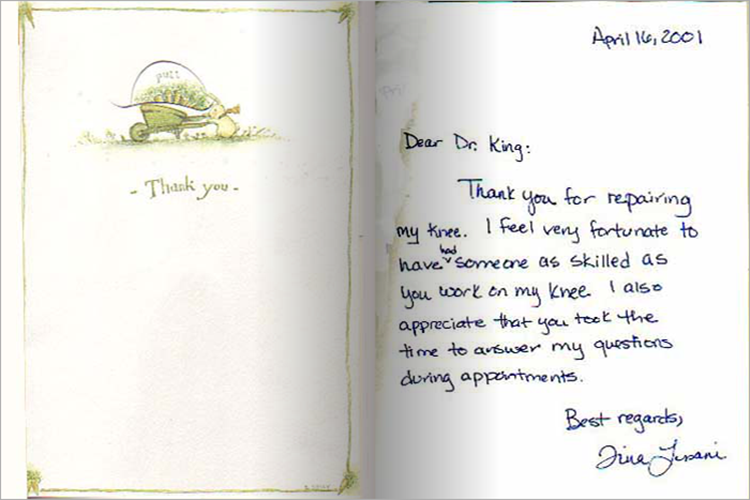 putt
- Thank you -
April 16, 2001
Dear Dr. King:
Thank you for repairing
my knee. I feel very fortunate to
had
have someone as skilled as
you work on my knee. I also
appreciate that you took the
time to answer my questions
during appointments.
Best regards,
Tina